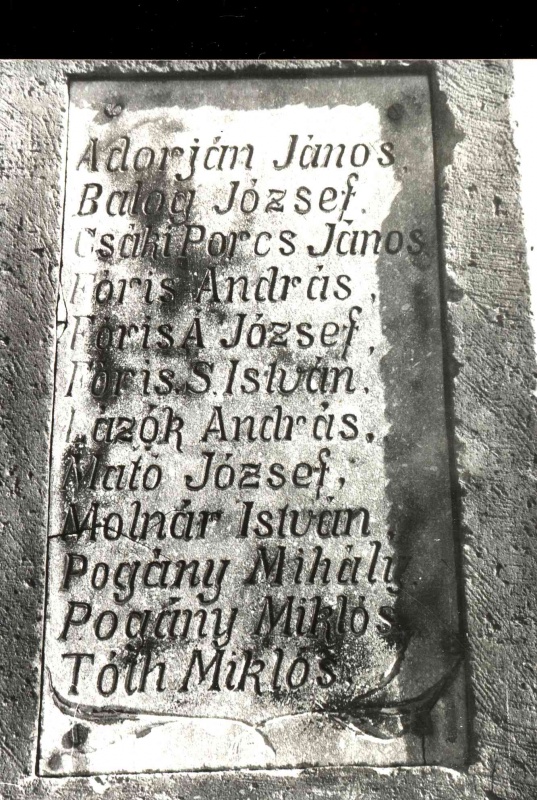 Adorján János,
Balog József,
Csáki Porcs János
Fóris András,
Fóris Á József,
Fóris.S.István.
Lázók András,
Mátó József,
Molnár István,
Pogány Mihály,
Pogány Miklós,
Tóth Miklós.